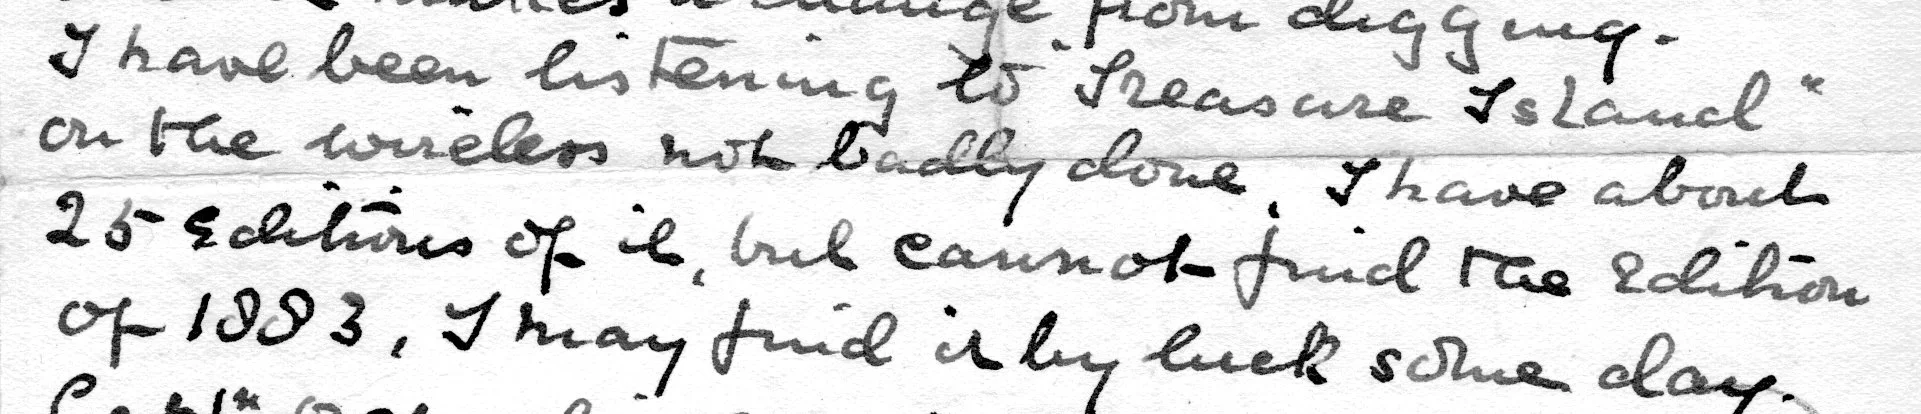 makes a change from digging.
I have been listening to "Treasure Island"
on the wireless not badly done. I have about
25 Editions of it, but cannot find the Edition
of 1883, I may find it by luck some day.